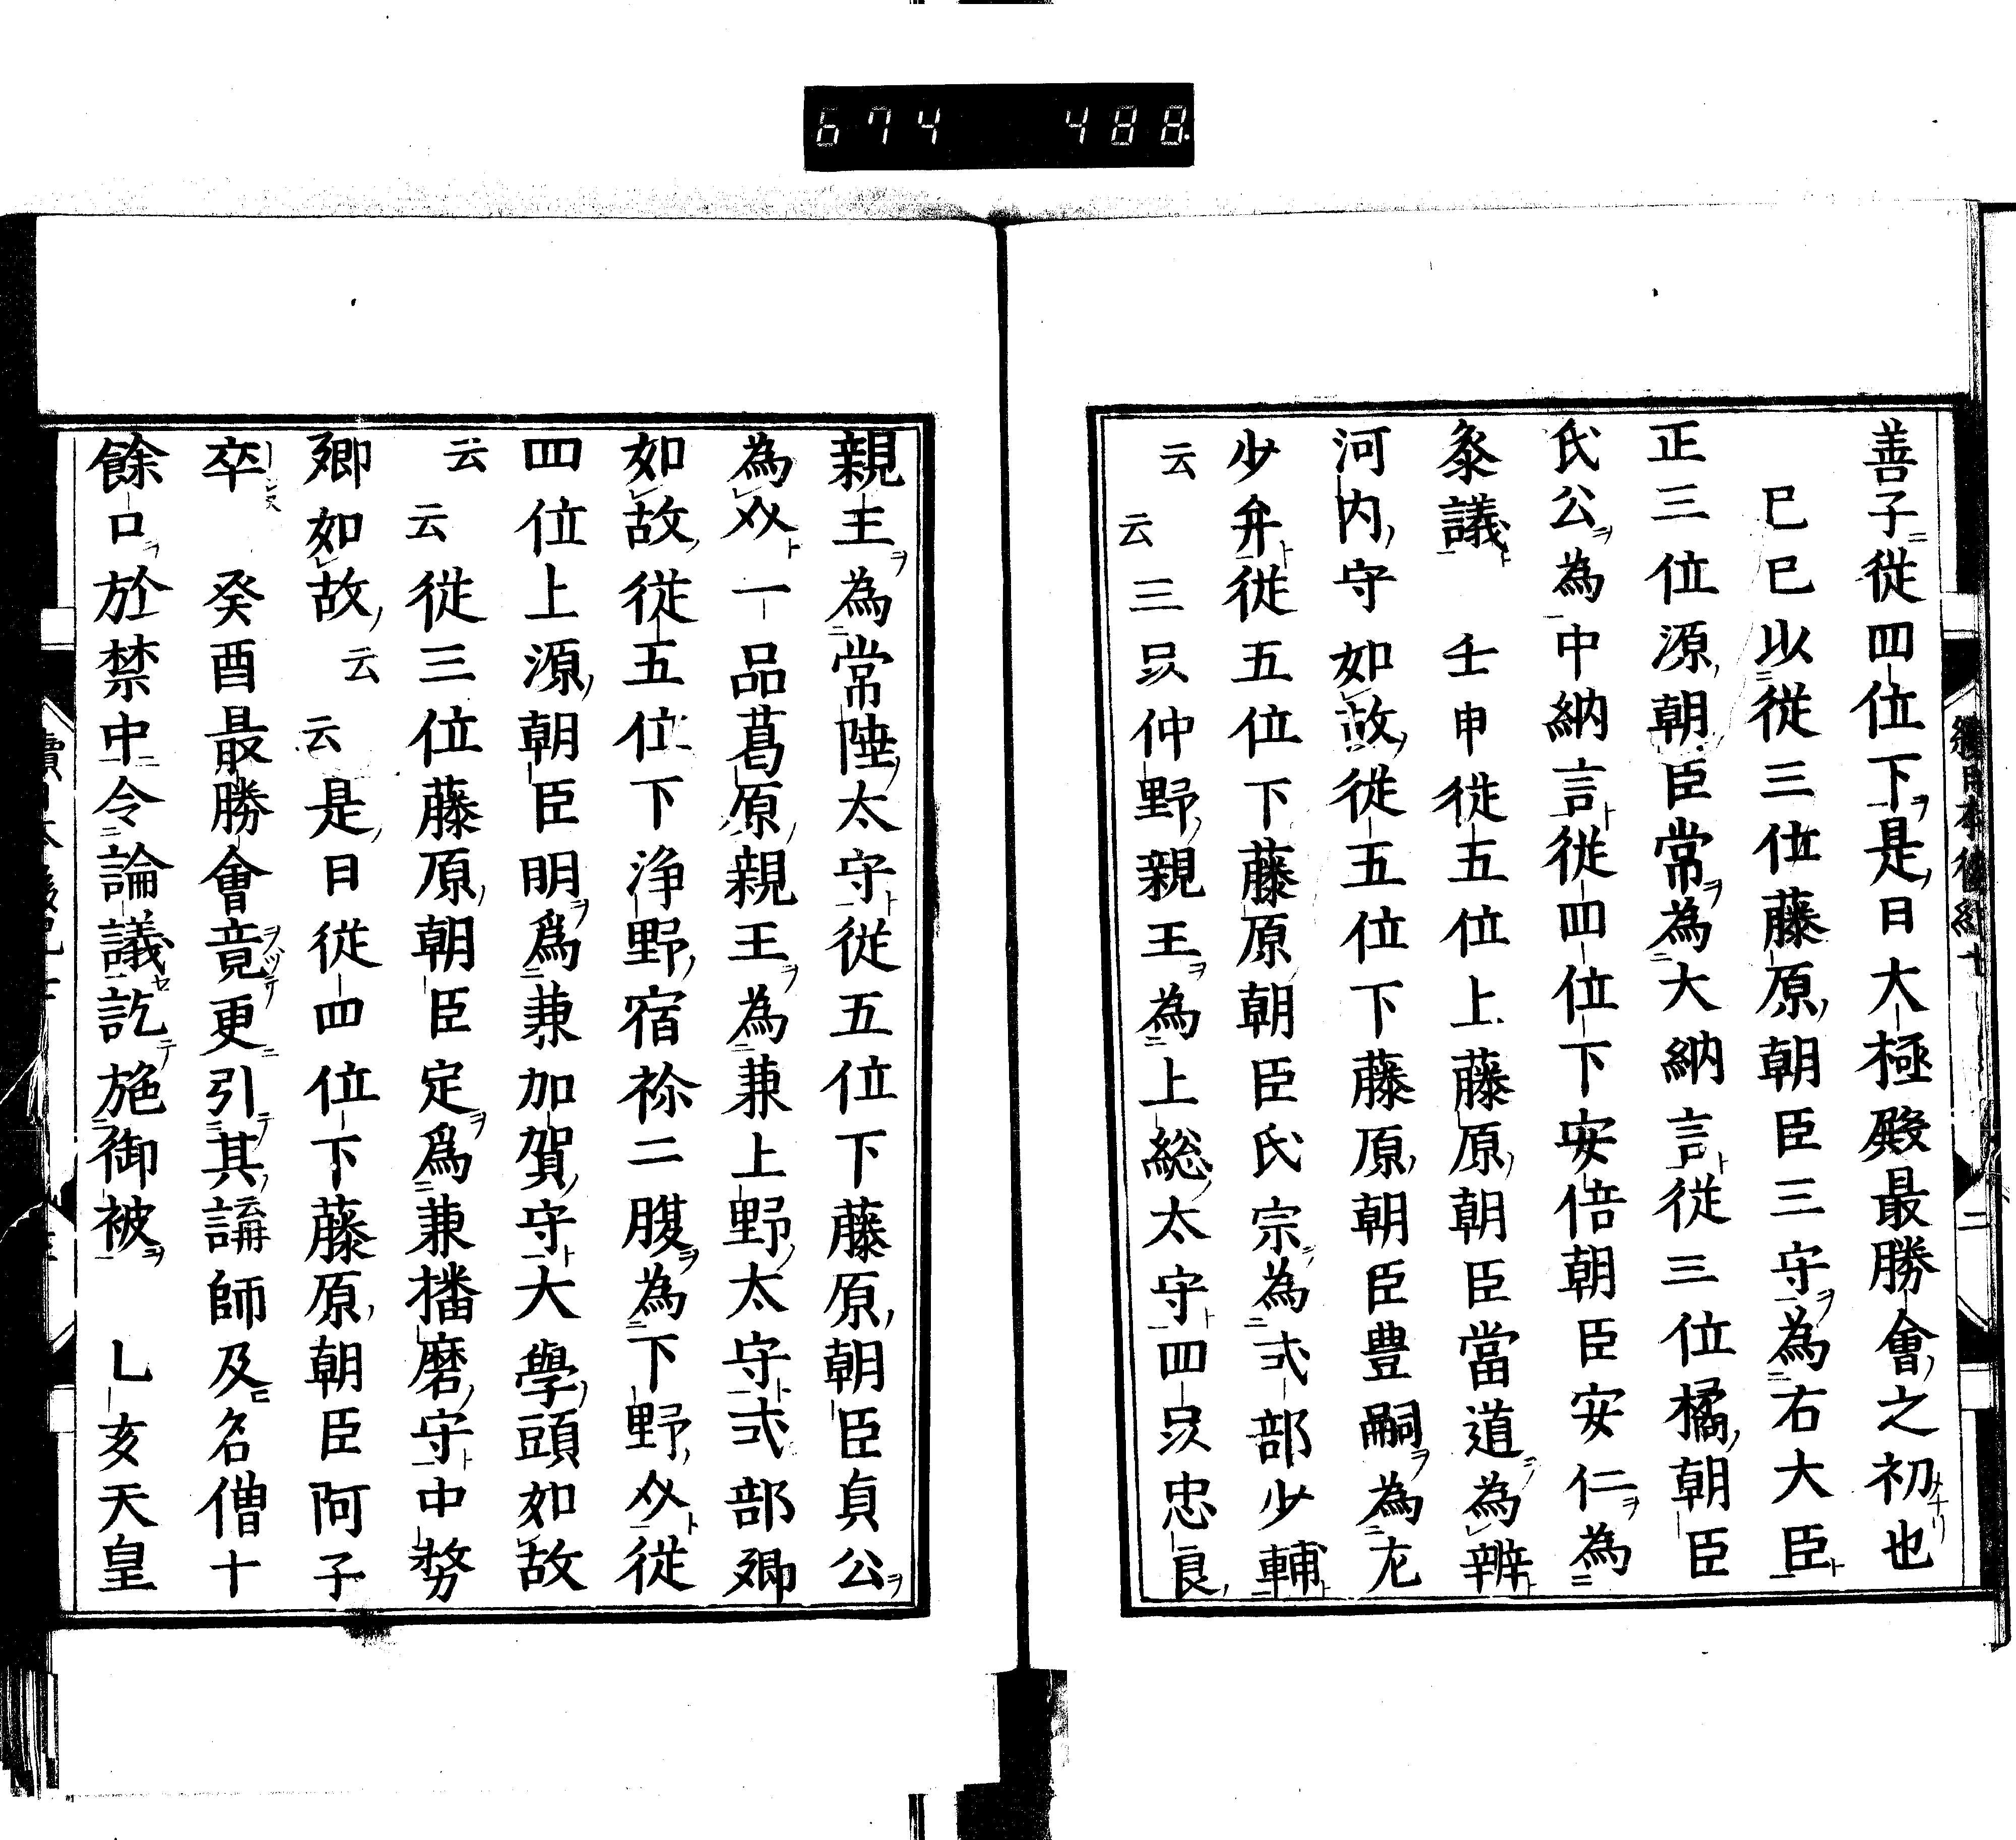 674 488
善子從四位下是日大極殿最勝會之初也
己巳以從三位藤原朝臣三守為右大臣
正三位源朝臣常為大納言從三位橘朝臣
氏公為中納言從四位下安倍朝臣安仁為
叅議 壬申從五位上藤原朝臣當道為辨
河内守如故從五位下藤原朝臣豊嗣為尤
少弁從五位下藤原朝臣氏宗為式部少輔
云云三品仲野親王為上総太守四品忠良
親王為常陸太守從五位下藤原朝臣貞公
為介一品葛原親王為兼上野太守式部卿
如故從五位下浄野宿祢二腹為下野介從
四位上源朝臣明爲兼加賀守大學頭如故
云云從三位藤原朝臣定爲兼播磨守中務
卿如故云云是日從四位下藤原朝臣阿子
卒 癸酉最勝會竟更引其講師及名僧十
餘口於禁中令論議訖施御被 乚亥天皇
續日本後紀十 二